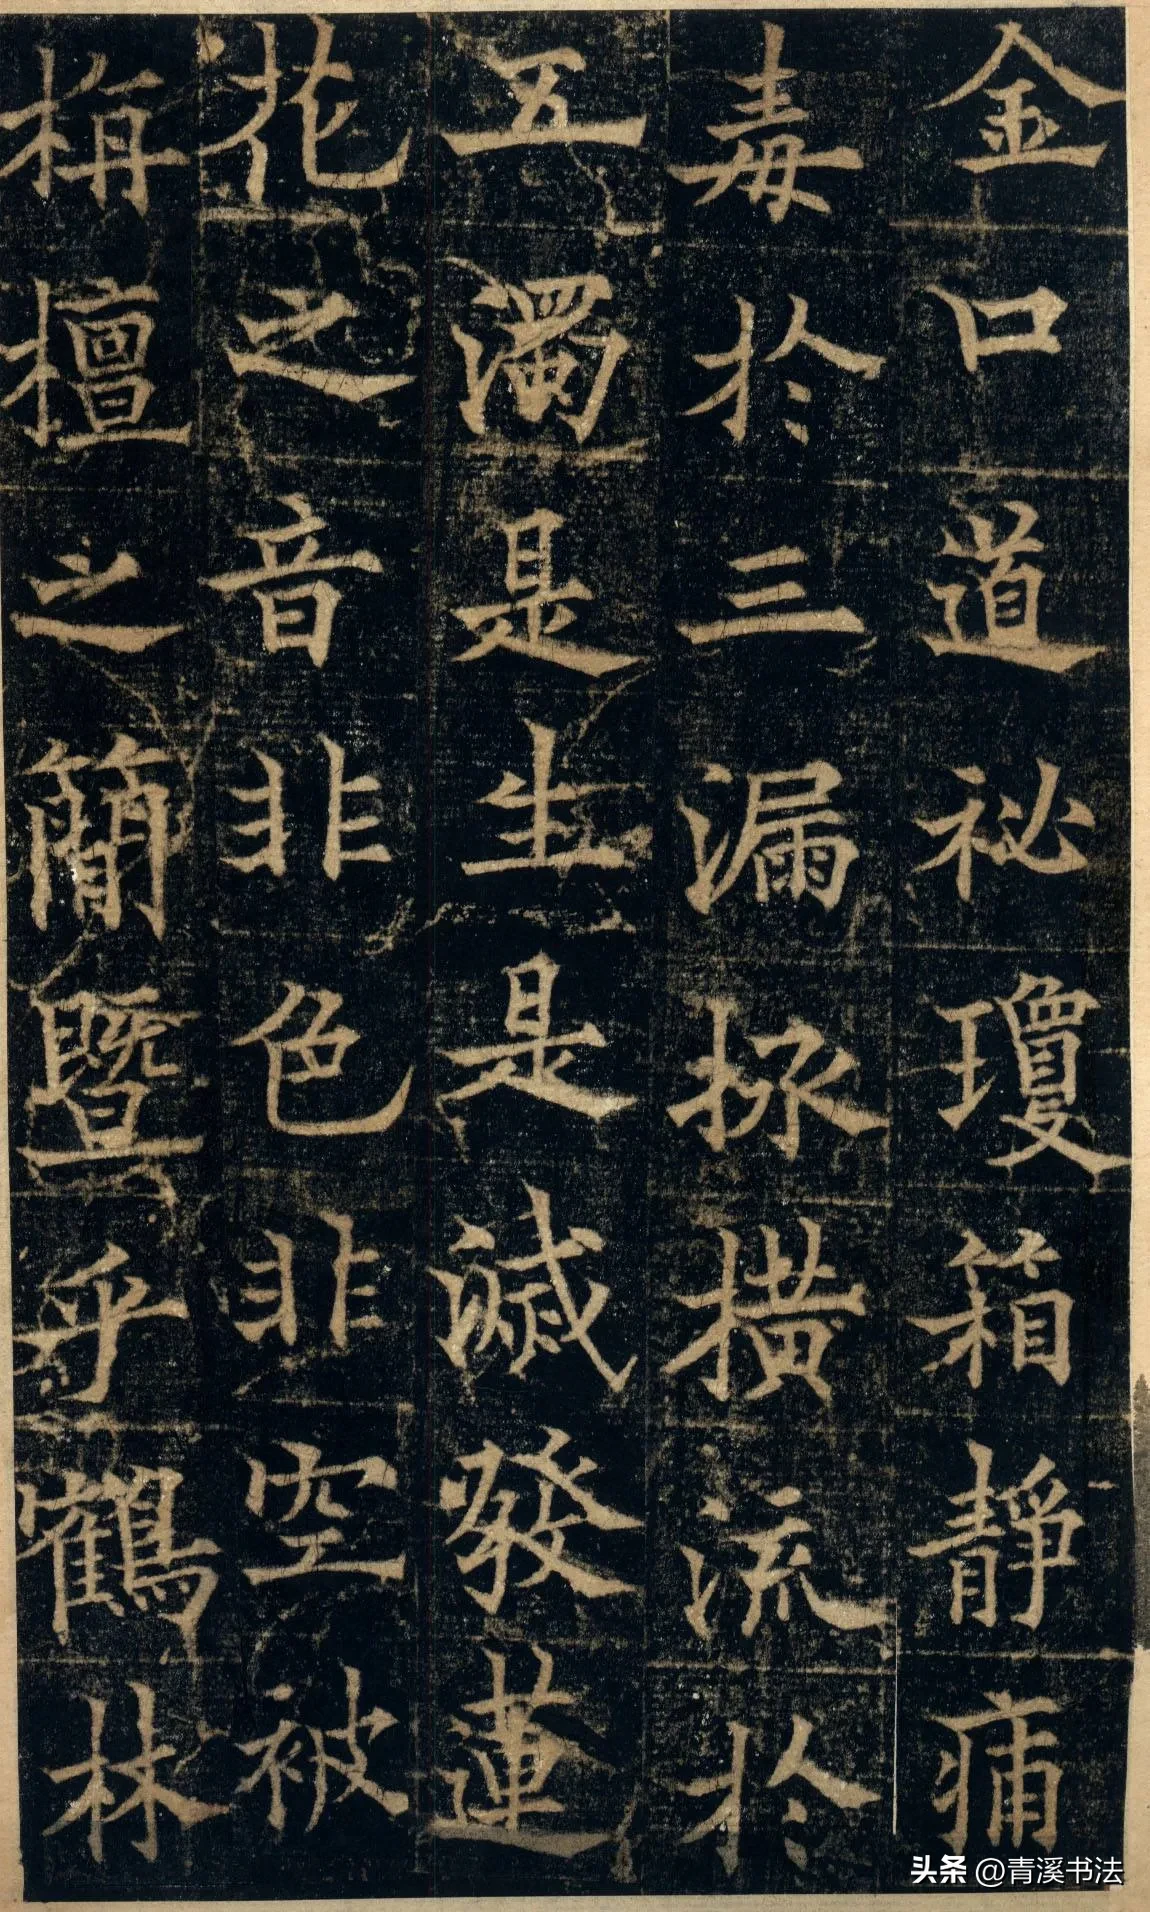 金口道祕瓊箱靜痡
毒於三漏拯横流於
五濁是生是滅發蓮
花之音非色非空被
栴檀之簡暨乎鶴林
头条 @青溪书法